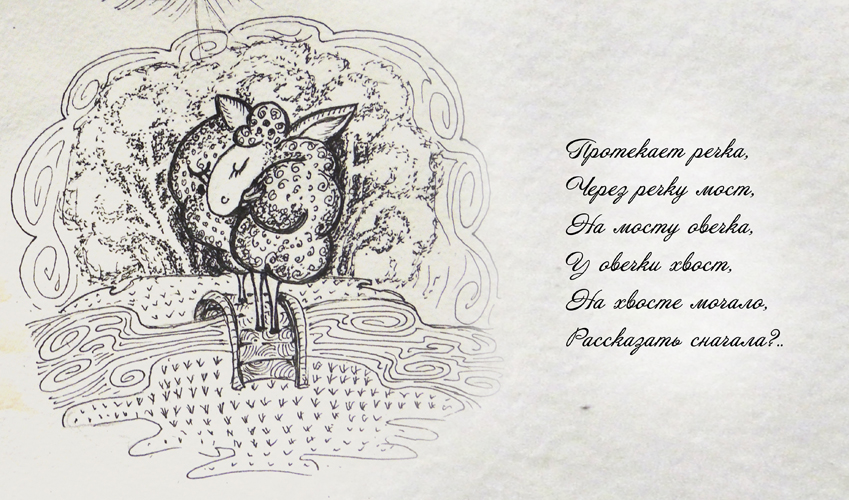 Протекает речка,
Через речку мост,
На мосту овечка,
У овечки хвост,
На хвосте мочало,
Рассказать сначала?..